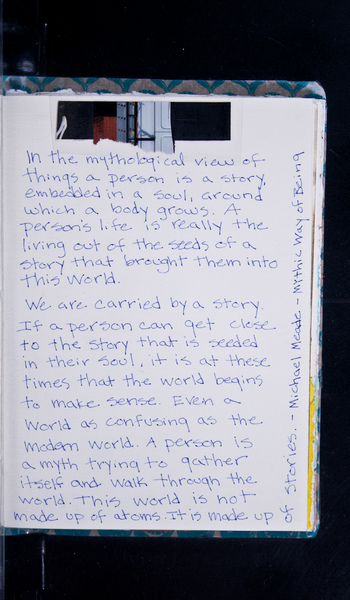 In the mythological view of
things a person is a story
embedded in a soul, around
which a body grows. A
person's life is really the
living out of the seeds of a
story that brought them into
this world.
We are carried by a story.
If a person can get close
to the story that is seeded
in their soul, it is at these
times that the world begins
to make sense. Even a
world as confusing as the
modern world. A person is
a myth trying to gather
itself and walk through the
world. This world is not
made up of atoms. It is made up
of stories. - Michael Meade - Mythic Way of Being